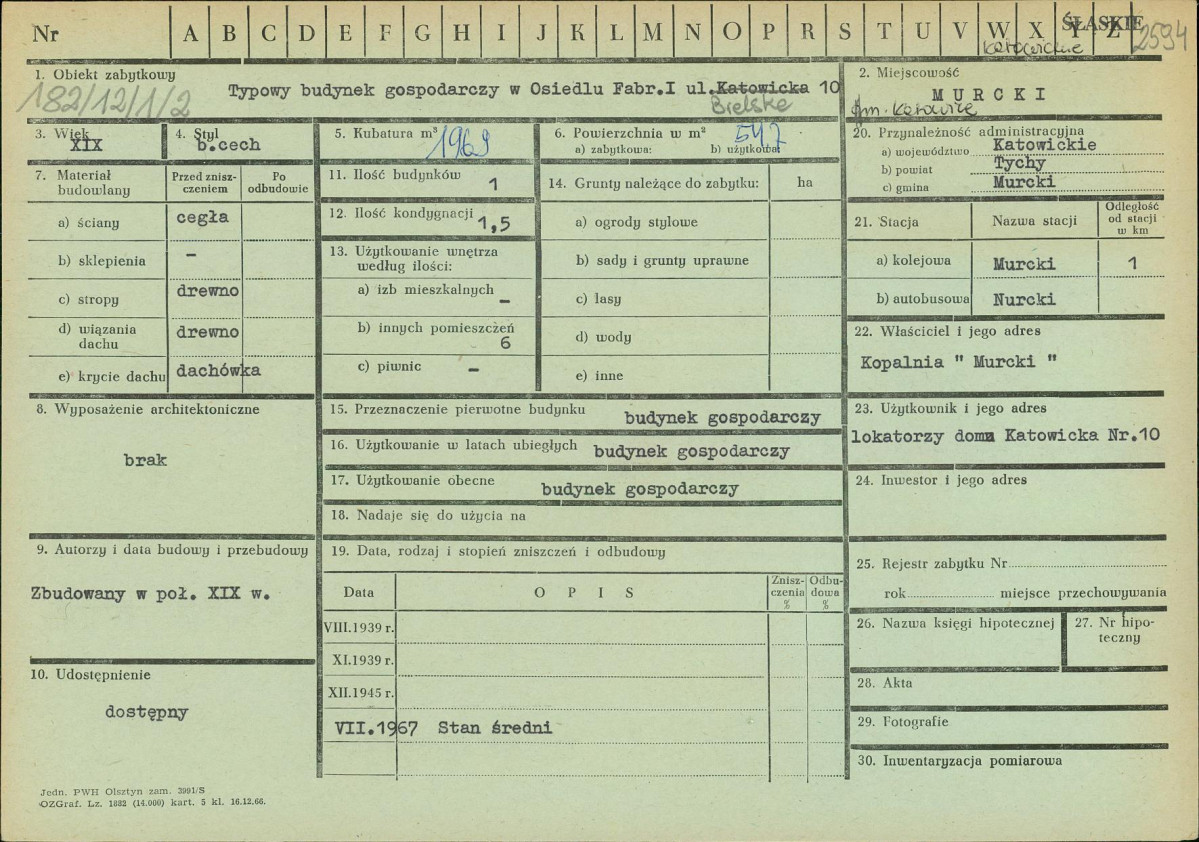 Nr A B C D E F G H I J K L M N O P R S T U V W X Y Z ŚLĄSKIE 2594
katowickie
1. Obiekt zabytkowy
182/12/1/2
Typowy budynek gospodarczy w Osiedlu Fabr.I ul.Katowicka 10
Bielska
2. Miejscowość
MURCKI
gm. Katowice
3. Wiek
XIX
4. Styl
b.cech
5. Kubatura m³
1969
6. Powierzchnia w m²
547
a) zabytkowa: b) użytkowa:
20. Przynależność administracyjna
a) województwo Katowickie
b) powiat Tychy
c) gmina Murcki
7. Materiał budowlany
Przed zniszczeniem
Po odbudowie
a) ściany cegła
b) sklepienia –
c) stropy drewno
d) wiązania dachu drewno
e) krycie dachu dachówka
11. Ilość budynków 1
12. Ilość kondygnacji 1,5
13. Użytkowanie wnętrza
według ilości:
a) izb mieszkalnych –
b) innych pomieszczeń 6
c) piwnic –
14. Grunty należące do zabytku: ha
a) ogrody stylowe
b) sady i grunty uprawne
c) lasy
d) wody
e) inne
21. Stacja Nazwa stacji Odległość od stacji w km
a) kolejowa Murcki 1
b) autobusowa Nurcki
22. Właściciel i jego adres
Kopalnia " Murcki "
8. Wyposażenie architektoniczne
brak
15. Przeznaczenie pierwotne budynku budynek gospodarczy
16. Użytkowanie w latach ubiegłych budynek gospodarczy
17. Użytkowanie obecne budynek gospodarczy
18. Nadaje się do użycia na
23. Użytkownik i jego adres
lokatorzy domu Katowicka Nr.10
24. Inwestor i jego adres
9. Autorzy i data budowy i przebudowy
Zbudowany w poł. XIX w.
10. Udostępnienie
dostępny
19. Data, rodzaj i stopień zniszczeń i odbudowy
Data OPIS Zniszczenia % Odbudowa %
VIII.1939 r.
XI.1939 r.
XII.1945 r.
VII.1967 Stan średni
25. Rejestr zabytku Nr
rok miejsce przechowywania
26. Nazwa księgi hipotecznej
27. Nr hipoteczny
28. Akta
29. Fotografie
30. Inwentaryzacja pomiarowa
Jedn. PWH Olsztyn zam. 3991/S
OZGraf. Lz. 1882 (14.000) kart. 5 kl. 16.12.66.